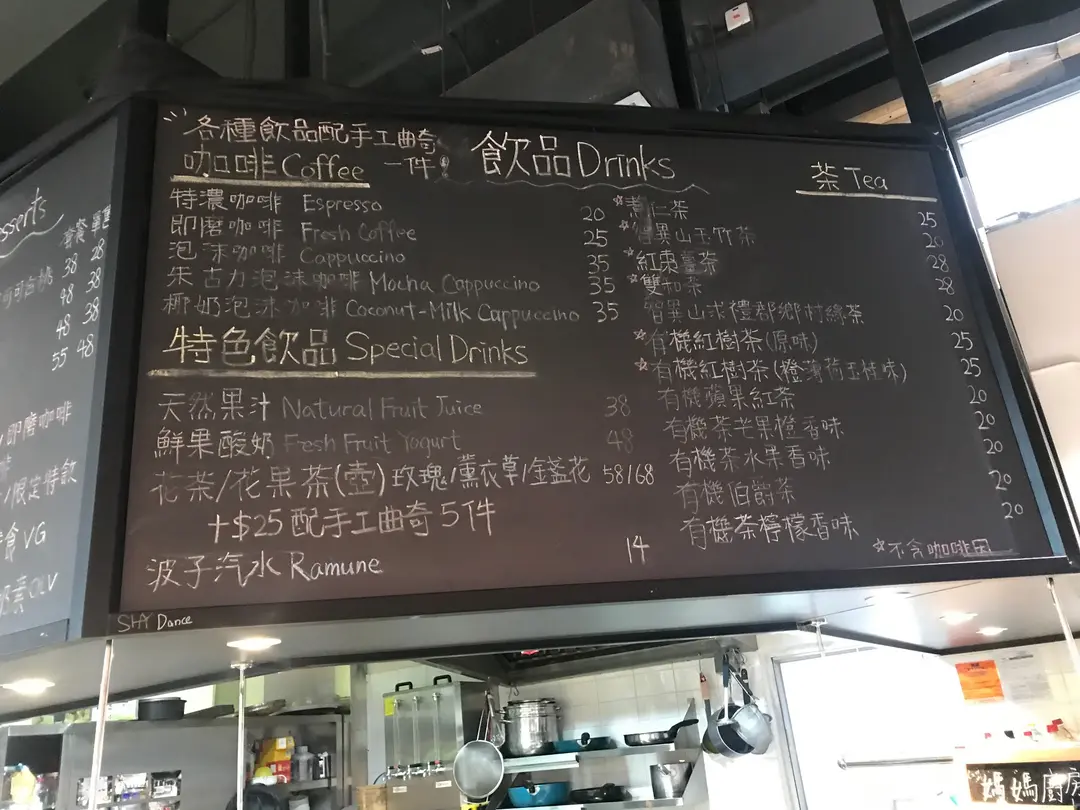 各種飲品配手工曲奇
一件!
飲品Drinks
咖啡Coffee
特濃咖啡 Espresso 20
即磨咖啡 Fresh Coffee 25
泡沫咖啡 Cappuccino 35
朱古力泡沫咖啡 Mocha Cappuccino 35
椰奶泡沫咖啡 Coconut-Milk Cappuccino 35
特色飲品 Special Drinks
天然果汁 Natural Fruit Juice 38
鮮果酸奶 Fresh Fruit Yogurt 48
花茶/花果茶(壺)玫瑰/薰衣草/金盞花 58/68
+$25配手工曲奇5件
波子汽水 Ramune 14
茶 Tea
☆薏仁茶 25
☆智異山玉竹茶 20
☆紅棗薑茶 28
☆雙和茶 28
智異山求禮郡鄉村綠茶 20
☆有機紅樹茶(原味) 25
☆有機紅樹茶(橙薄荷玉桂味) 25
有機蘋果紅茶 20
有機茶芒果橙香味 20
有機茶水果香味 20
有機伯爵茶 20
有機茶檸檬香味 20
☆不含咖啡因
STAY Dance
sserts
38 28
48 38
48 38
55 48
/即磨咖啡
/限定特飲
食VG
OLV
媽媽廚房